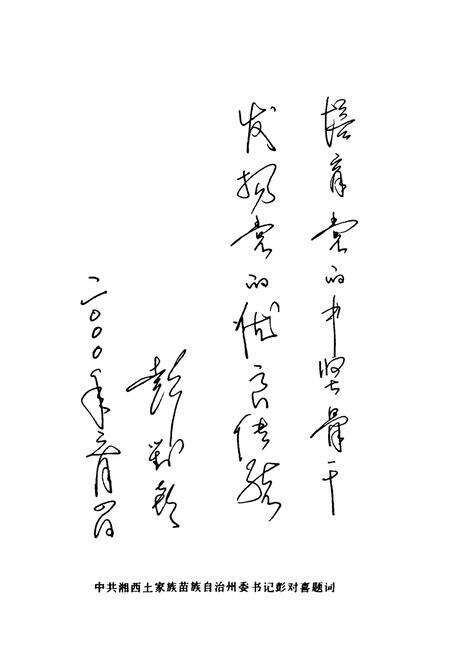 培育党的中坚骨干
发扬党的优良传统
彭对喜
二000年六月四日
中共湘西土家族苗族自治州委书记彭对喜题词